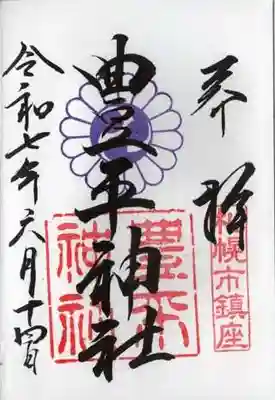 奉拝
札幌市鎮座
豊平神社
豊平神社
令和七年六月十四日